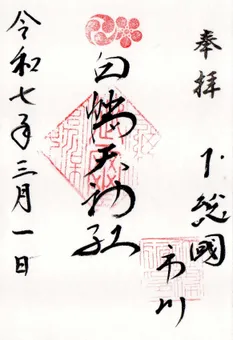 奉拝
下総國
市川
白幡天神社
令和七年三月一日